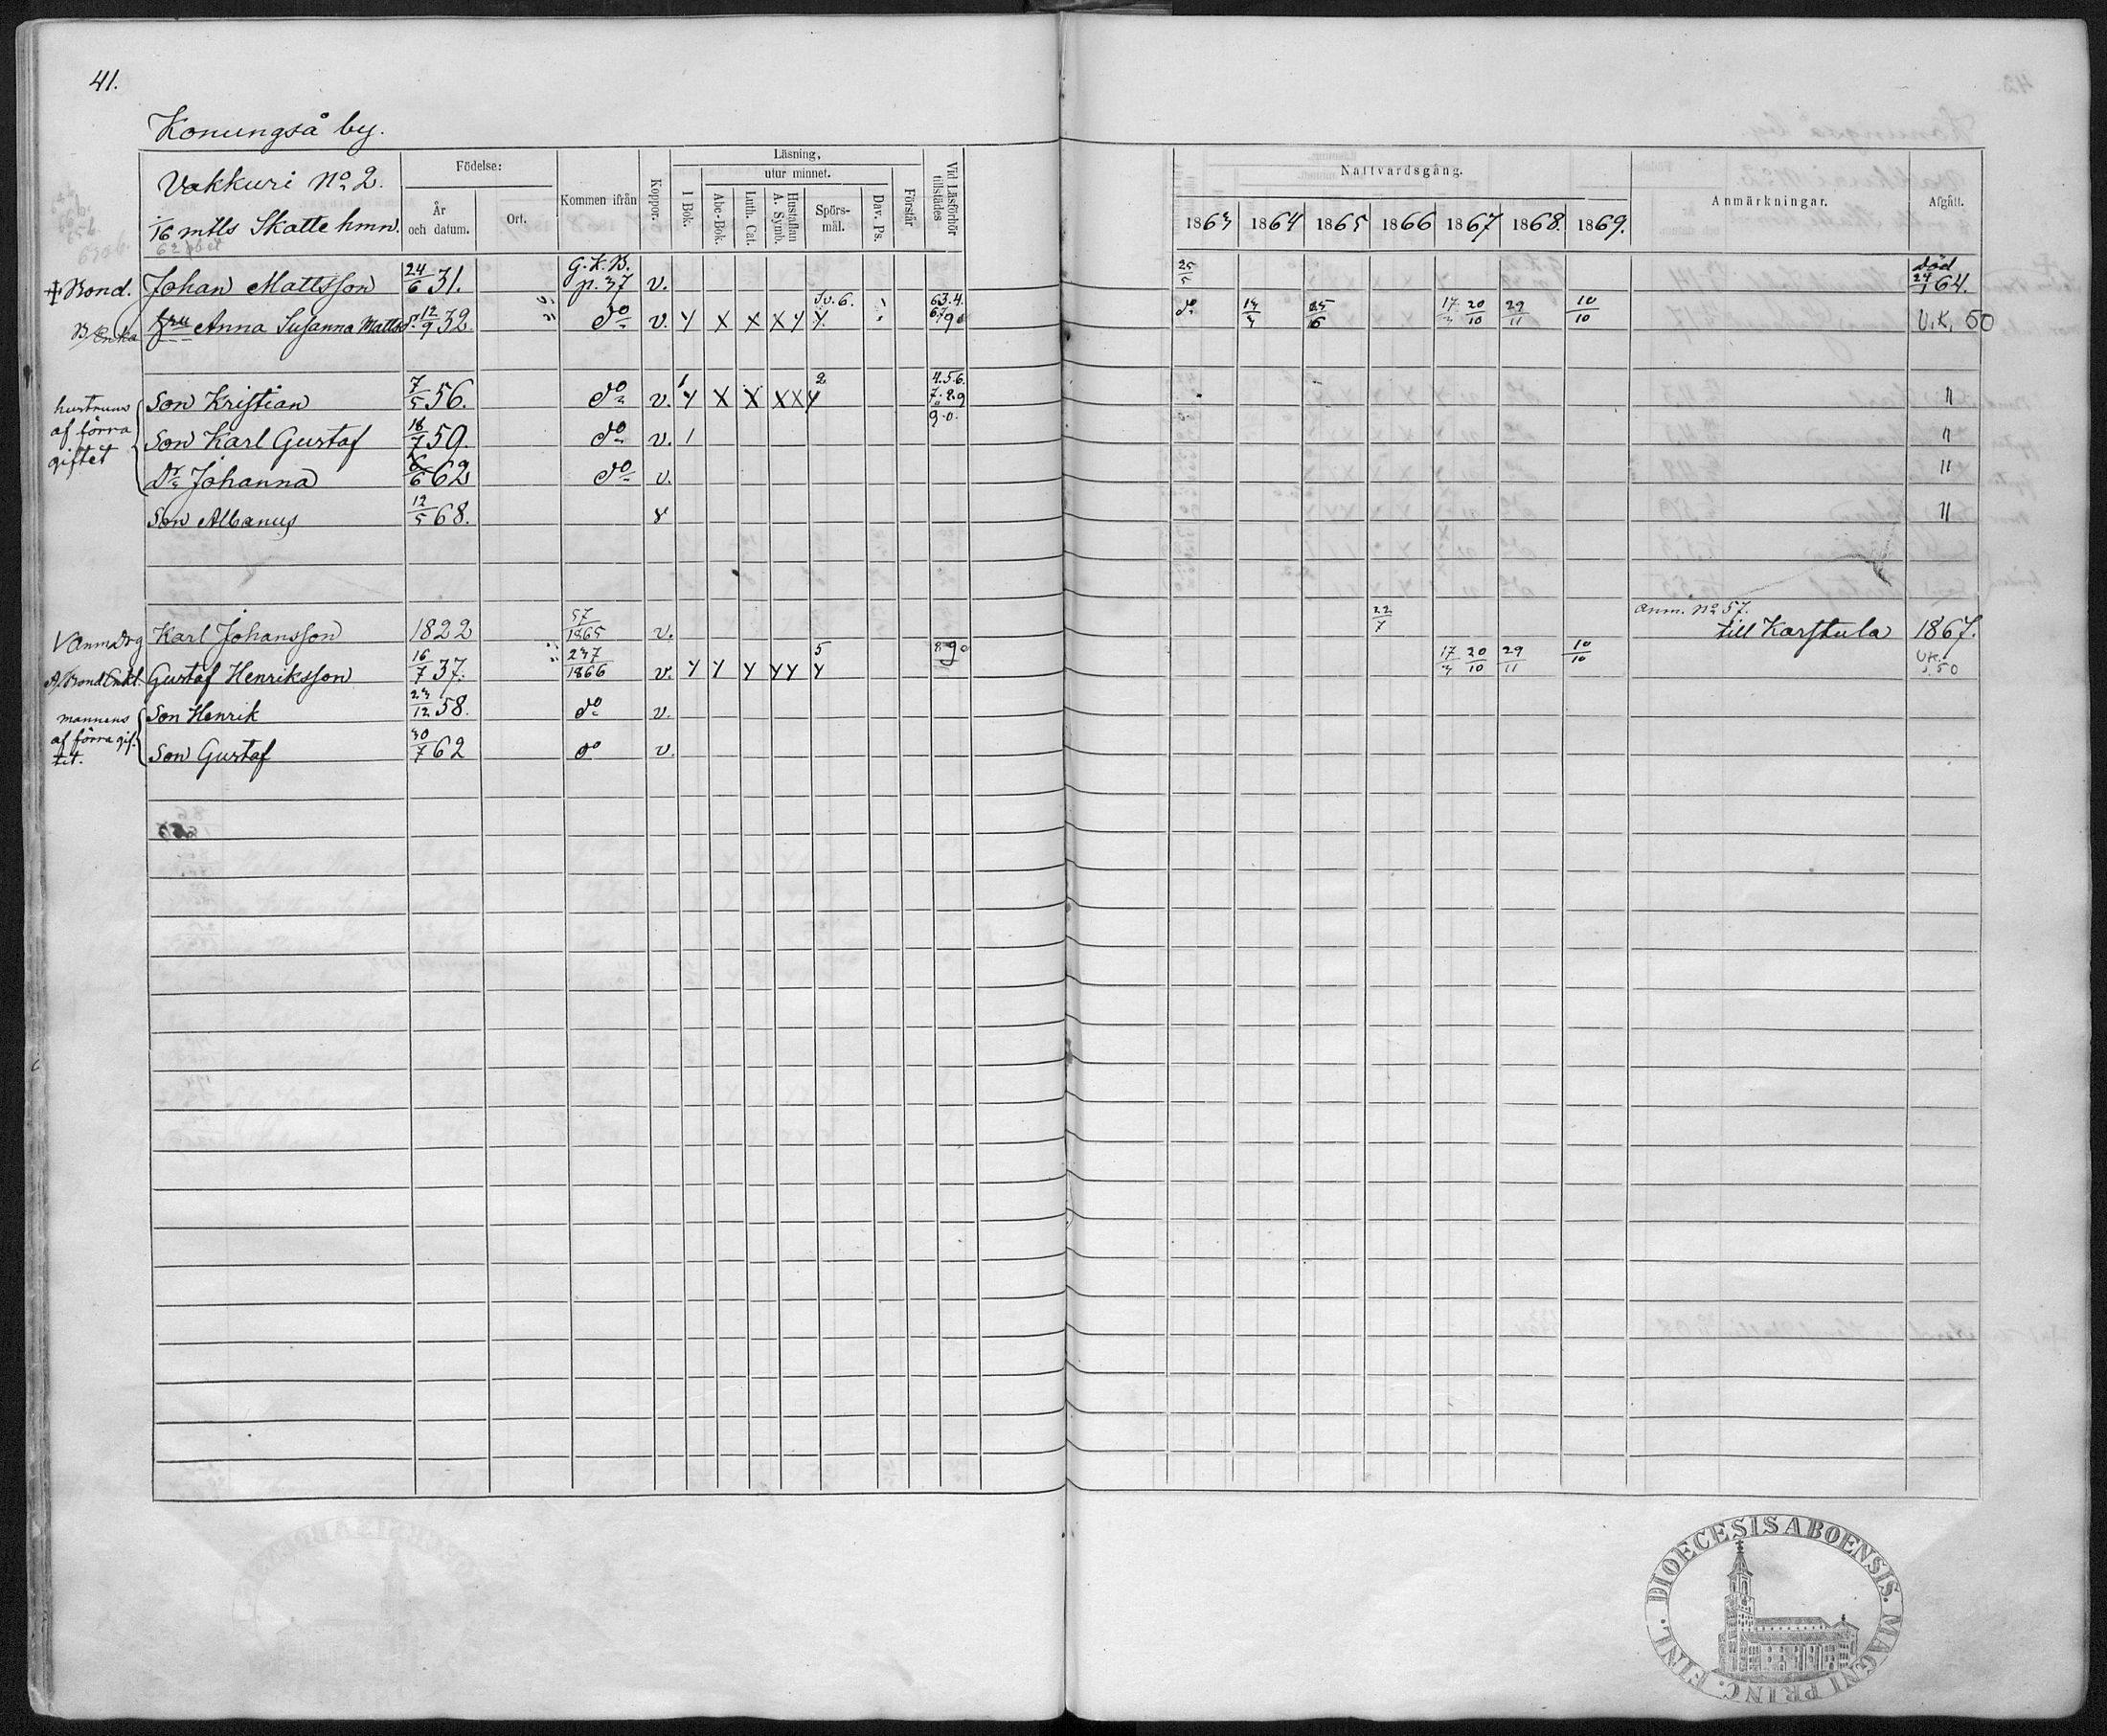 41.
Konungså by.
Vakkuri No 2.
1/16 mtls Skatte hmn.
Födelse:
År och datum.
Ort.
Kommen ifrån
Koppor.
Läsning,
utur minnet.
I Bok.
Abc-Bok.
Luth. Cat.
Hustaflan A. Symb.
Spörs-mål.
Dav. Ps.
Förstår
Vid Läsförhör tillstädes
Nattvardsgång.
1863 1864 1865 1866 1867 1868. 1869.
Anmärkningar.
Afgått.
† Bond. Johan Mattsson 24/6 31. G.K.B. p. 37 v. 25/5 död 24/1 64.
Enka hru Anna Susanna Mattsdr 12/9 32 do v. Y X X X Y Y. Sv. 6. 63.4. 67 90 do 13/3 25/6 17/3 20/10 29/11 10/10 U.K. 50
hustruns af förra giftet
Son Kristian 7/5 56. do v. Y X X X X Y 2 4.5.6. 7.8.9 9.0. "
Son Karl Gustaf 18/7 59. do v. 1 "
Dr Johanna 6/6 62 do v. "
Son Albanus 12/5 68. v "
Karl Johansson 1822 57/1865 v. 22/7 anm. No 57. till Karstula 1867.
Bond Enkl. Gustaf Henriksson 16/7 37. 237/1866 v. Y Y Y Y Y Y 5 8 90 17/3 20/10 29/11 10/10 U.K. s. 50
mannens af förra gif-tet.
Son Henrik 23/12 58. do v.
Son Gustaf 30/7 62 do v.
DIOECESIS ABOENSIS. MAGNI PRINC. FINL.